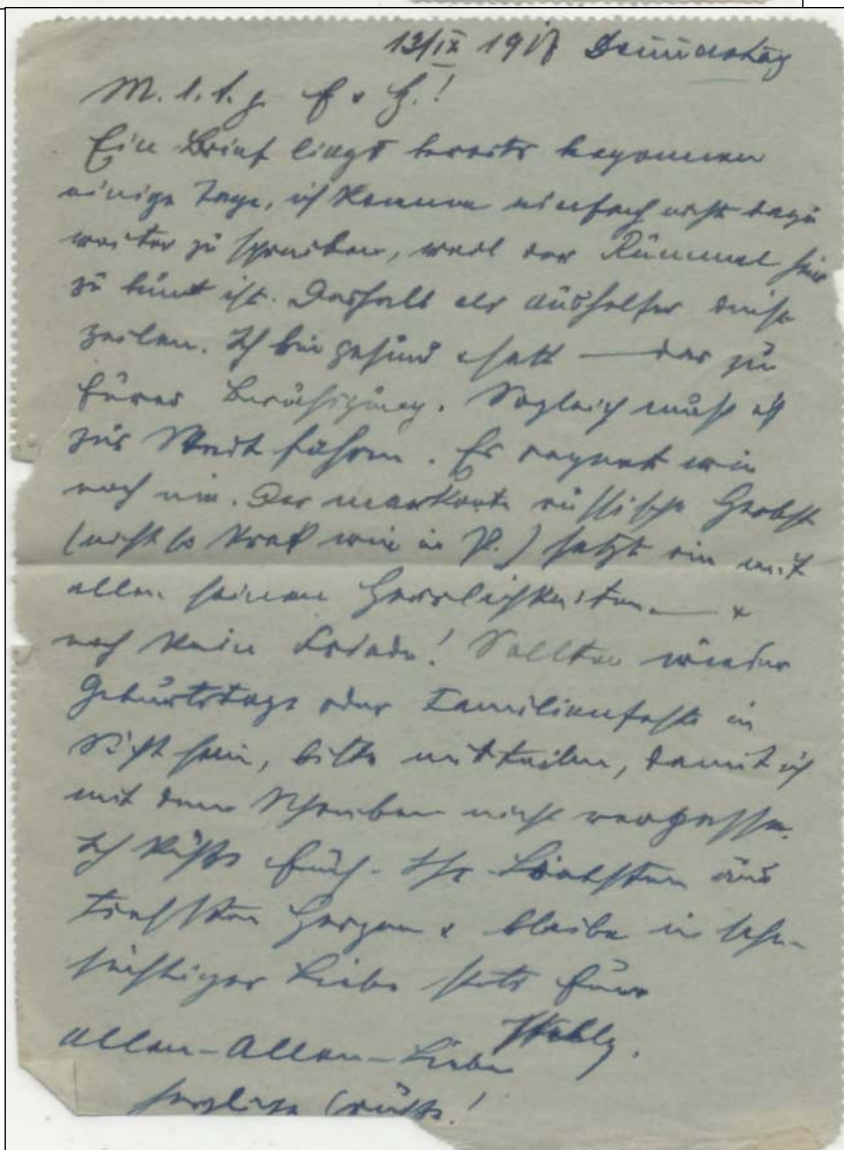 13/IX 1917 Donnerstag
M. l. l. g. E. u. H.!
Ein Brief liegt bereits begonnen
einige Tage, ich komme einfach nicht dazu
weiter zu schreiben, weil der Rummel hier
zu bunt ist. Deshalb als Aushelfer diese
Zeilen. Ich bin gesund & satt — das zu
Eurer Beruhigung. Sogleich muß ich
zur Stadt fahren. Es regnet wie
noch nie. Der markante russische Herbst
(nicht so kraß wie in P.) setzt ein mit
allen seinen Herrlichkeiten — &
noch kein Friede! Sollten wieder
Geburtstage oder Familienfeste in
Sicht sein, bitte mitteilen, damit ich
mit dem Schreiben nicht vergesse.
Ich küsse Euch - Ihr Liebsten aus
tiefstem Herzen & bleibe in sehn-
süchtiger Liebe stets Euer
Allen - Allen - Lieben
herzliche Grüße!